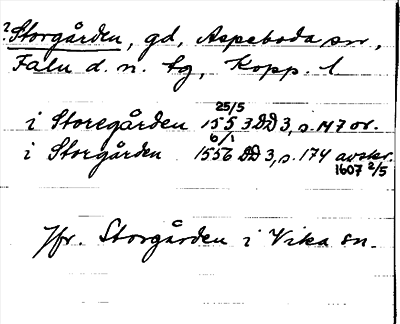 ?Storgården, gd, Aspeboda sn,
Falu d. n. tg, Kopp. l
i Storegården 25/5 1553 DD 3, s. 147 or.
i Storgården 6/1 1556 DD 3, s. 174 avskr.
1607 2/5
Jfr. Storgården i Vika sn.